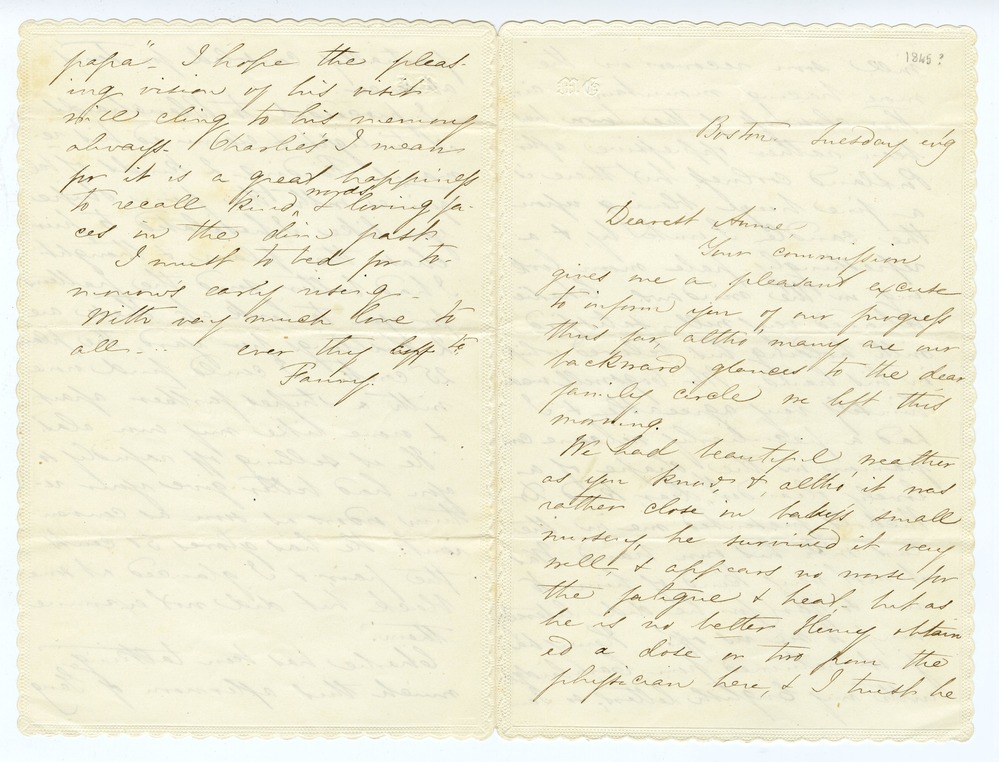 1845?
Boston Tuesday ev'g
Dearest Annie
Your commission
gives me a pleasant excuse
to inform you of our progress
thus far, altho' many are our
backward glances to the dear
family circle we left this
morning.
We had beautiful weather
as you know, & altho' it was
rather close in baby's small
nursery, he survived it very
well, & appears no worse for
the fatigue & heat - but as
he is no better Henry obtain
ed a dose or two from the
physician here, & I trust he
papa" - I hope the pleas-
ing vision of his visit
will cling to his memory
always - Charlie's I mean
for it is a great happiness
to recall kind words & loving fa-
ces in the dim past.
I must to bed for to-
morrows early rising -
With very much love to
all - .. ever thy
Fanny.